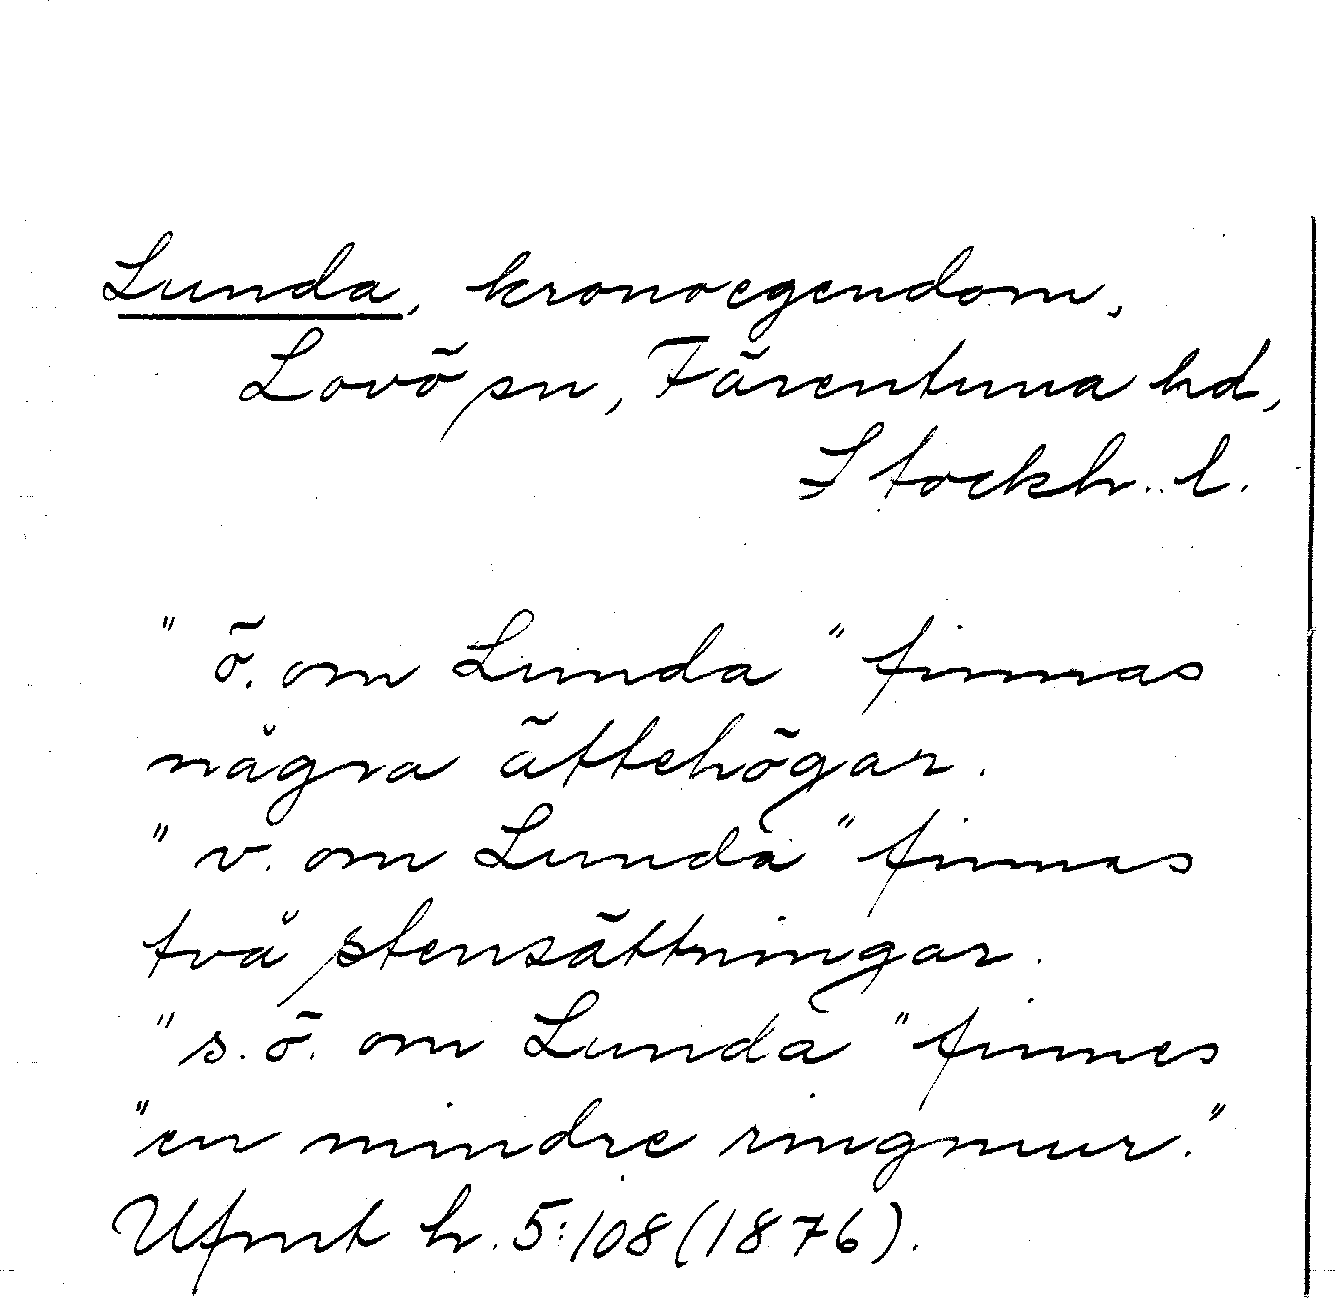 Lunda, kronoegendom,
Lovö sn, Färentuna hd,
Stockh. l.
" ö. om Lunda" finnas
några ättehögar.
" v. om Lunda" finnas
två stensättningar.
" s.ö. om Lunda" finnes
"en mindre ringmur."
Ufmt h. 5:108 (1876).